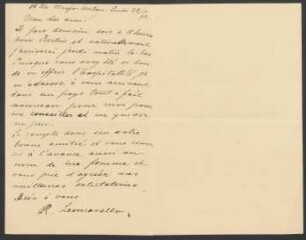 Mon cher ami!
Je pars demain soir à 11 heures
pour Berlin et naturellement
j'arriverai jeudi matin là-bas
Puisque vous avez été si bon
de m'offrir l'hospitalité, je
m'adresse à vous arrivant
dans un pays tout à fait
nouveau pour moi pour
me conseiller et me guider
un peu.
Je compte donc sur votre
bonne amitié et vous remer-
cie à l'avance aussi au
nom de ma femme et
vous prie d'agréer nos
meilleures salutations.
Bien à vous
R. Leoncavallo